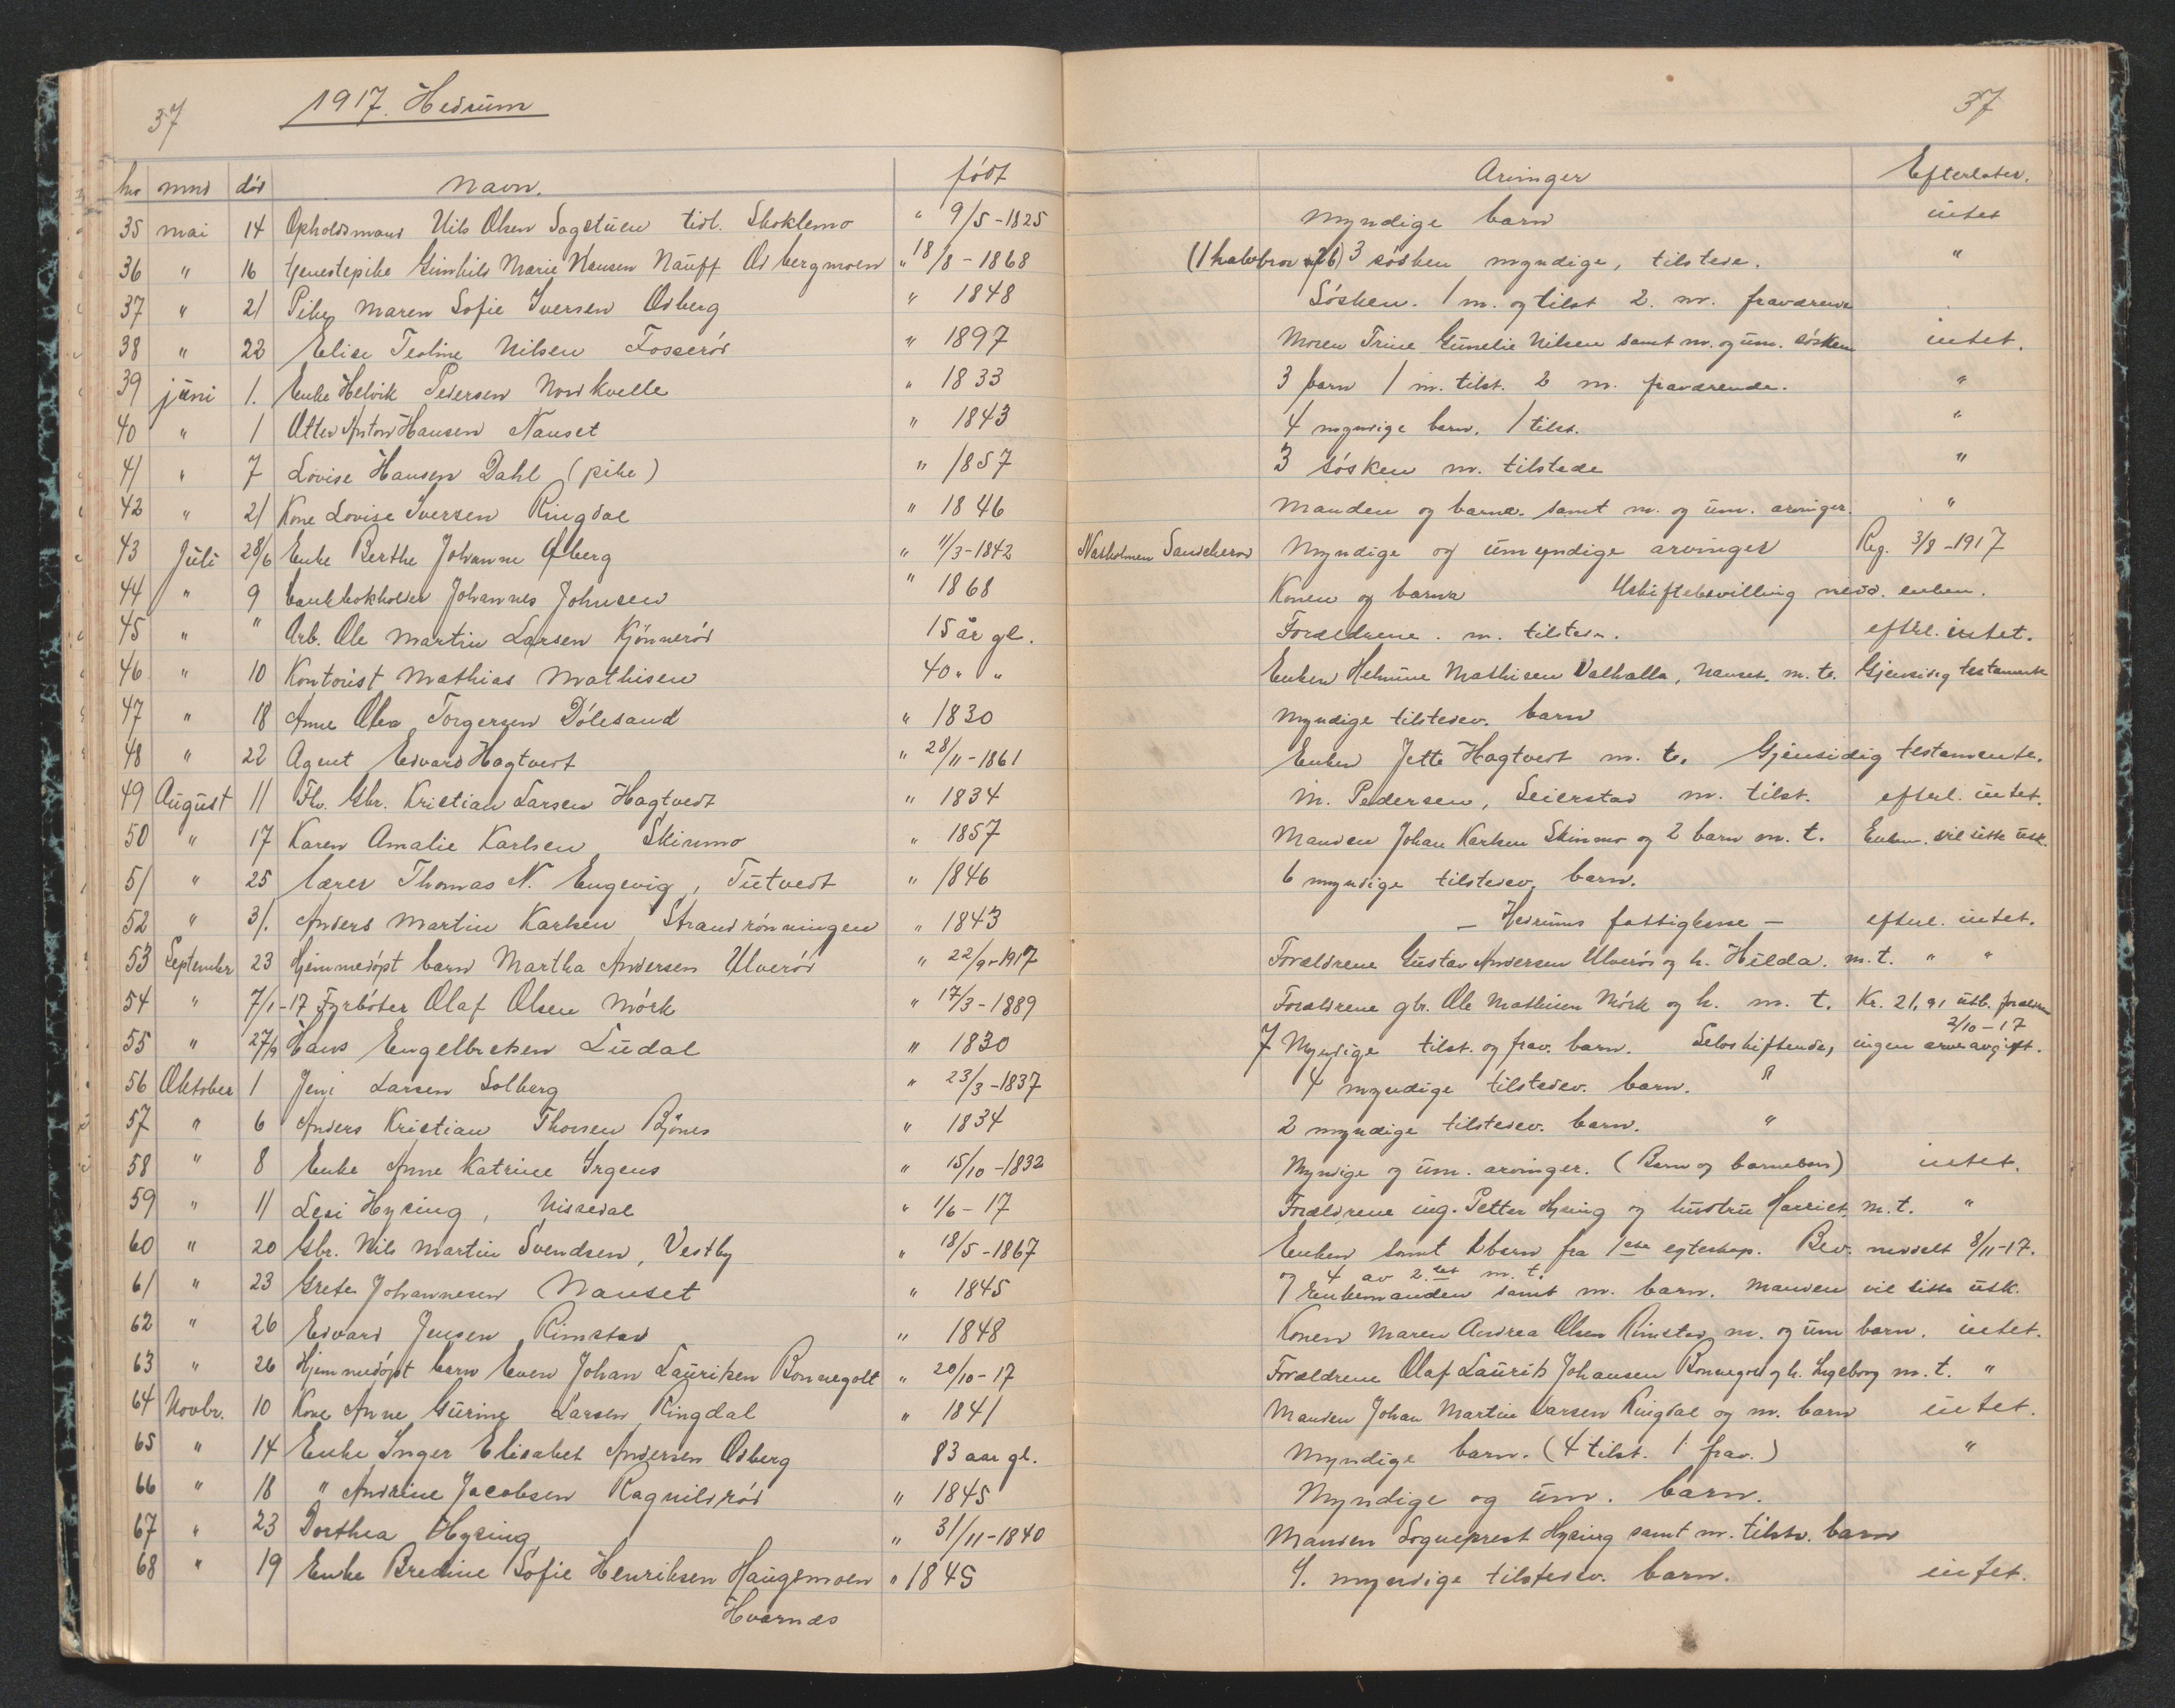 37 1917. Hedrum
hr mnd død Navn. født
35 mai 14 Opholdsmand Nils Olsen Sagstuen tidl. Skoklemo " 9/5-1825
36 " 16 tjenestepike Gunhild Marie Hansen Nauff Odbergmoen " 18/8-1868
37 " 21 Pike Maren Sofie Iversen Odberg " 1848
38 " 22 Elise Teoline Nilsen Fosserød " 1897
39 juni 1. Enke Helvik Pedersen Nordkvelle " 1833
40 " 1 Otter Anton Hansen Nanset " 1843
41 " 7 Lovise Hansen Dahl (pike) " 1857
42 " 21 Kone Lovise Iversen Ringdal " 1846
43 Juli 28/6 Enke Berthe Johanne Øberg " 11/3-1842
44 " 9 bankbokholder Johannes Johnsen " 1868
45 " " Arb. Ole Martin Larsen Kjønnerød 15 år gl.
46 " 10 Kontorist Mathias Mathisen 40 " "
47 " 18 Anne Olea Torgersen Dølesand " 1830
48 " 22 Agent Edvard Hagtvedt " 28/11-1861
49 August 11 Fhv. Gbr. Kristian Larsen Hagtvedt " 1834
50 " 17 Karen Amalie Karlsen Skinmo " 1857
51 " 25 Lærer Thomas N. Engevig, Tutvedt " 1846
52 " 31. Anders Martin Karlsen Strandrønningen " 1843
53 September 23 Hjemmedøpt barn Martha Andersen Ulverød " 22/9-1917
54 " 7/1-17 Fyrbøter Olaf Olsen Mørk " 17/3-1889
55 " 27/9 Hans Engelbretsen Ludal " 1830
56 Oktober 1 Jeni Larsen Solberg " 23/3-1837
57 " 6 Anders Kristian Thorsen Bjønes " 1834
58 " 8 Enke Anne Katrine Irgens " 15/10-1832
59 " 11 Lesi Hysing, Nissedal " 1/6-17
60 " 20 Gbr. Nils Martin Svendsen, Vestby " 18/5-1867
61 " 23 Grete Johannesen Nanset " 1845
62 " 26 Edvard Jensen Rimstad " 1848
63 " 26 Hjemmedøpt barn Even Johan Lauritsen Bonnegolt " 20/10-17
64 Novbr. 10 Kone Anne Gurine Larsen Ringdal " 1841
65 " 14 Enke Inger Elisabet Andersen Odberg 83 aar gl.
66 " 18 " Andrine Jacobsen Ragnildrød " 1845
67 " 23 Dorthea Hysing " 31/11-1840
68 " 19 Enke Bredine Sofie Henriksen Haugsmoen " 1845
Hvarnes
37
Arvinger Efterlater.
Myndige barn intet
(1 halvbror) 3 søsken myndige, tilstede. "
Søsken. 1 m. og tilst 2. m. fraværende
Moren Trine Gunelie Nilsen samt m. og um. søsken intet.
3 barn 1 m. tilst. 2 m. fraværende. "
4 myndige barn. 1 tilst. "
3 søsken m. tilstede "
Manden og barna. samt m. og um. arvinger. "
Natholmen Sandeherred Myndige og umyndige arvinger Reg. 3/8-1917
Konen og barna Uskiftebevilling medd. enken.
Forældrene. m. tilstede. efterl. intet.
Enken Helmine Mathisen Valhalla, Nanset. m. t. Gjensidig testamente
Myndige tilstedev. barn
Enken Jette Hagtvedt m. t. Gjensidig testamente.
M. Pedersen, Seierstad m. tilst. efterl. intet.
Manden Johan Karlsen Skinmo og 2 barn m. t. Enkem. vil sitte usk.
6 myndige tilstedev. barn.
- Hedrums fattigkasse - efterl. intet.
Forældrene Gustav Andersen Ulverød og h. Hilda. m. t. " "
Forældrene gbr. Ole Mathisen Mørk og h. m. t. Kr. 21,91 utb. forældre
2/10-17
7 Myndige tilst. og frav. barn. Selvskiftende, ingen arveavgift.
4 myndige tilstedev. barn. "
2 myndige tilstedev. barn. "
Myndige og um. arvinger. (Barn og barnebarn) intet.
Forældrene ing. Petter Hysing og hustru Harriet m. t. "
Enken samt barn fra 1ste egteskap. Bev. meddelt 8/11-17.
og 4 av 2.det m. t.
Enkemanden samt m. barn. Manden vil sitte usk.
Konen Maren Andrea Olsen Rimstad m. og um barn. intet.
Forældrene Olaf Laurits Johansen Bonnegolt og h. Ingeborg m. t. "
Manden Johan Martin Larsen Ringdal og m. barn intet.
Myndige barn. (4 tilst. 1 frav.) "
Myndige og um. barn.
Manden Sogneprest Hysing samt m. tilstv. barn
4. myndige tilstedev. barn. intet.